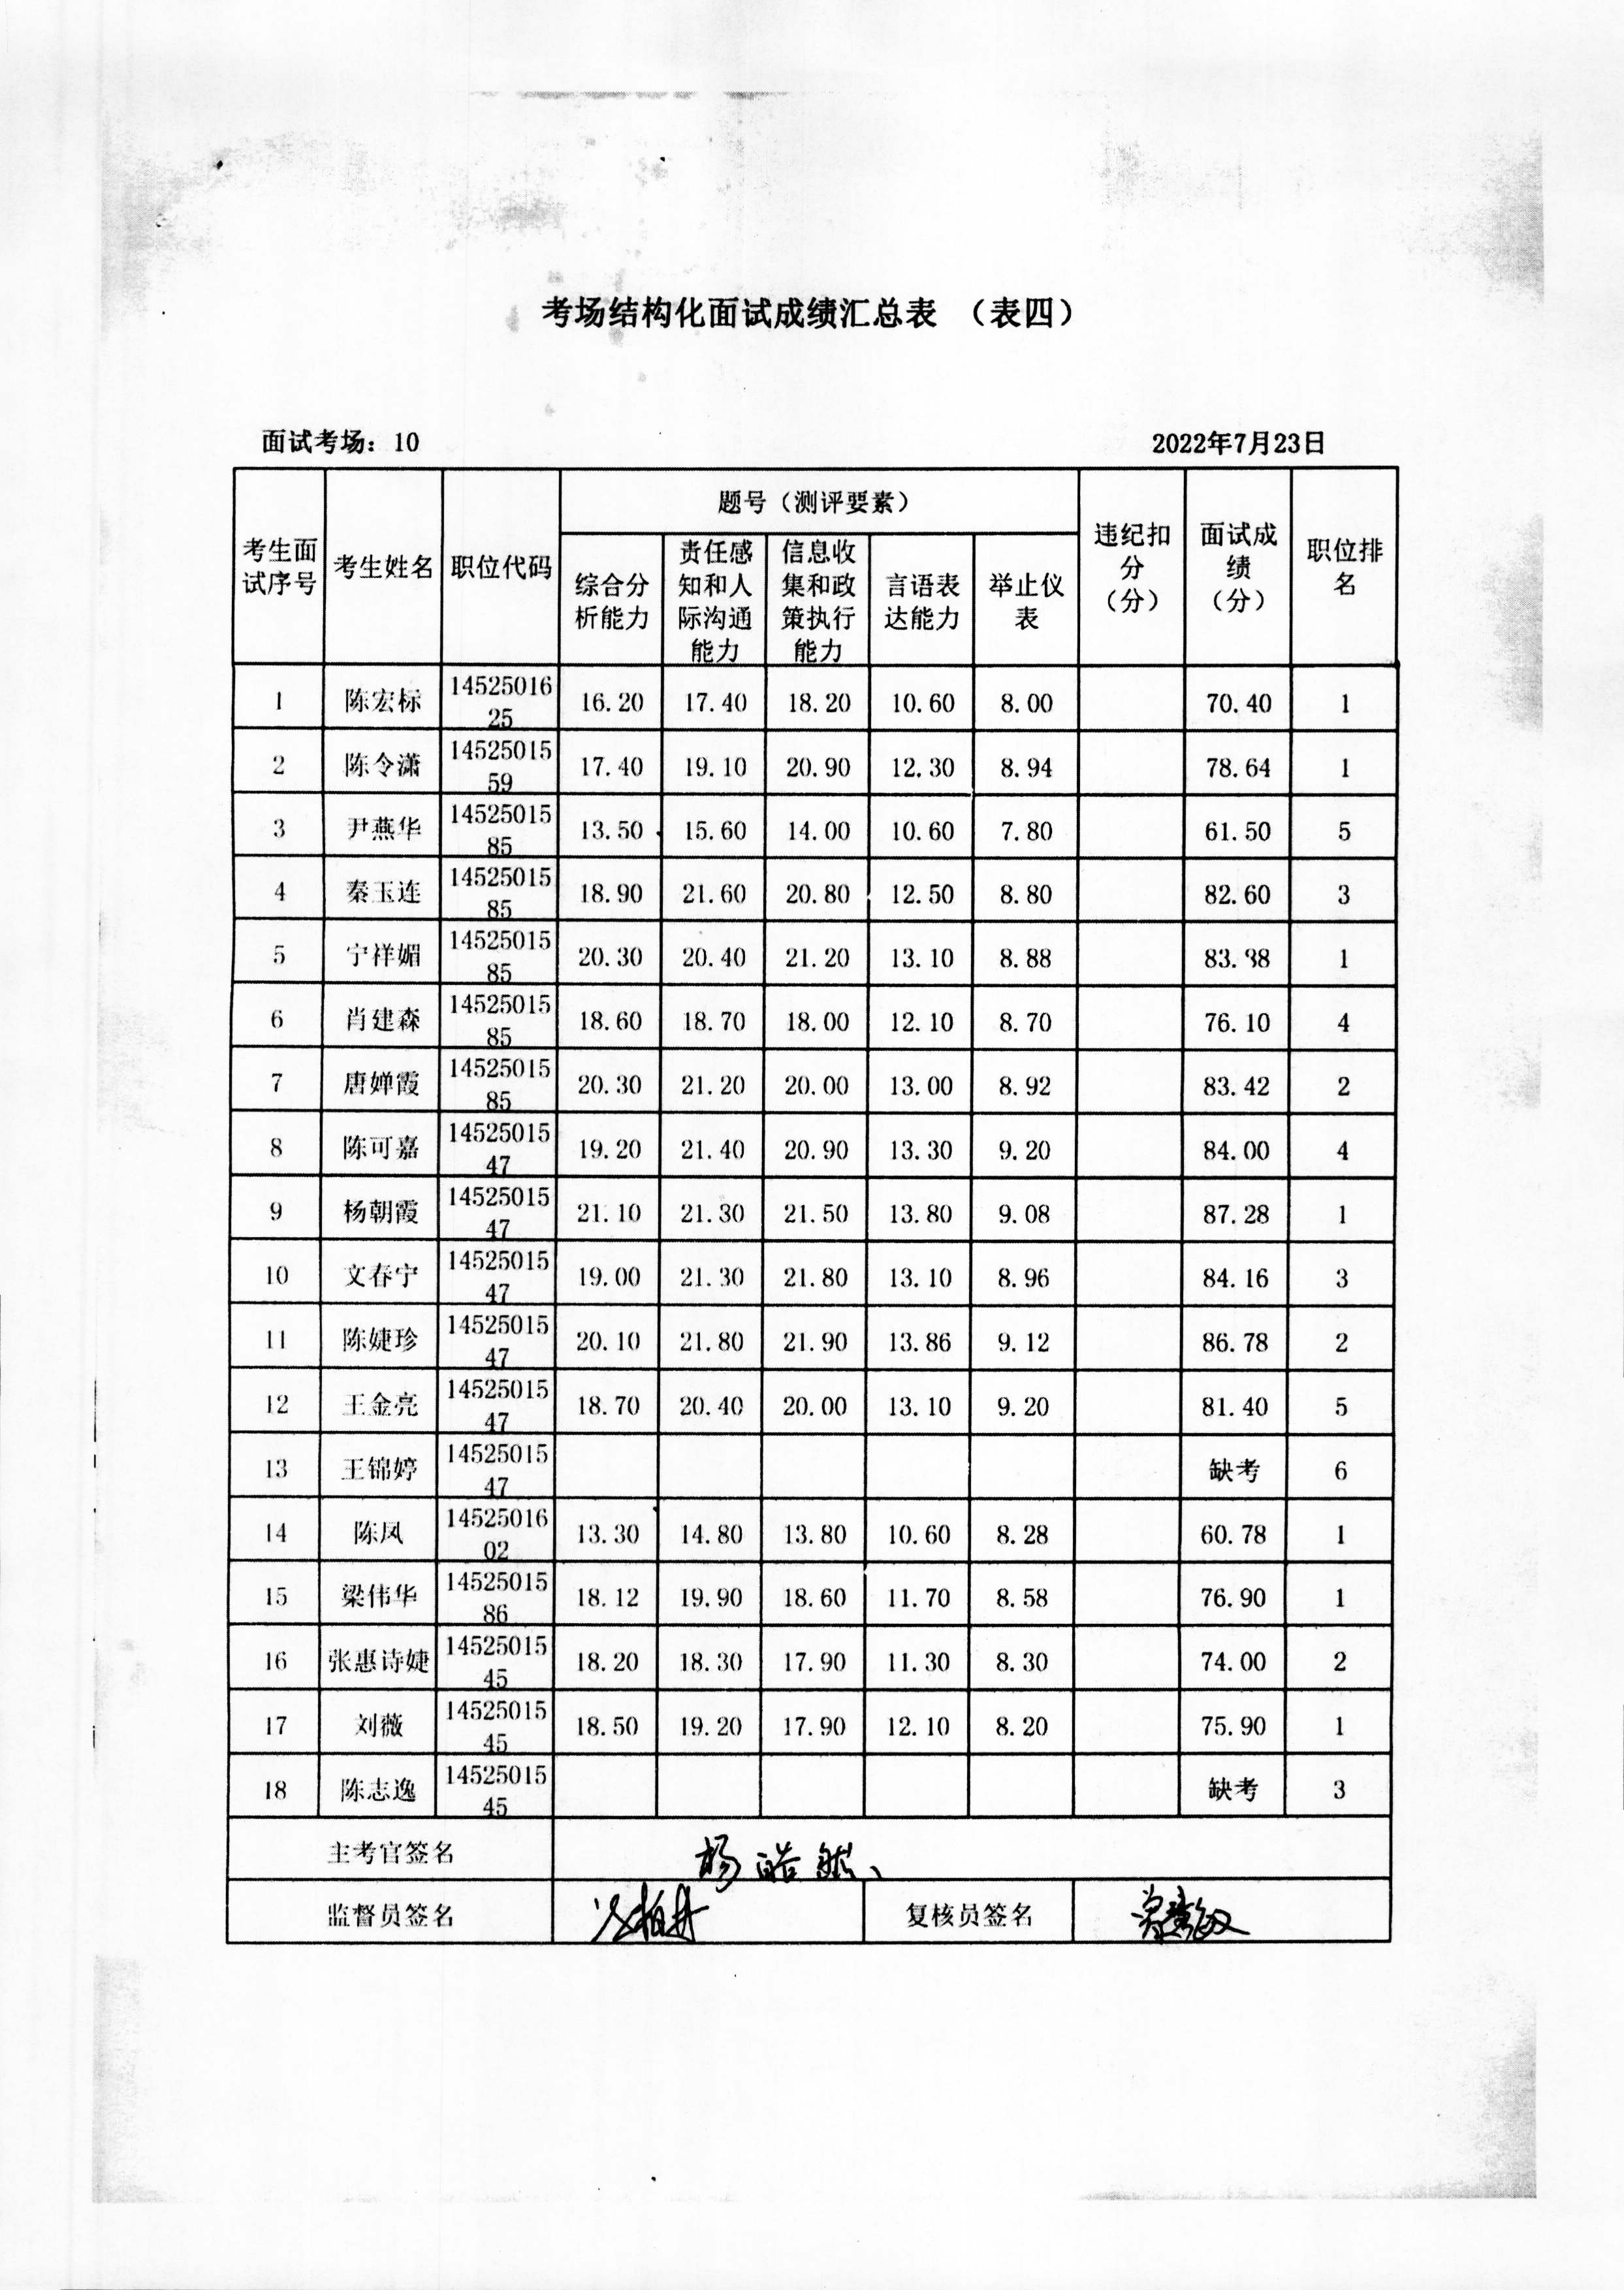 考场结构化面试成绩汇总表 （表四）
面试考场：10 2022年7月23日
考生面试序号 考生姓名 职位代码 题号（测评要素） 违纪扣分（分） 面试成绩（分） 职位排名
综合分析能力 责任感知和人际沟通能力 信息收集和政策执行能力 言语表达能力 举止仪表
1 陈宏标 1452501625 16.20 17.40 18.20 10.60 8.00 70.40 1
2 陈令潇 1452501559 17.40 19.10 20.90 12.30 8.94 78.64 1
3 尹燕华 1452501585 13.50 15.60 14.00 10.60 7.80 61.50 5
4 秦玉连 1452501585 18.90 21.60 20.80 12.50 8.80 82.60 3
5 宁祥媚 1452501585 20.30 20.40 21.20 13.10 8.88 83.88 1
6 肖建森 1452501585 18.60 18.70 18.00 12.10 8.70 76.10 4
7 唐婵霞 1452501585 20.30 21.20 20.00 13.00 8.92 83.42 2
8 陈可嘉 1452501547 19.20 21.40 20.90 13.30 9.20 84.00 4
9 杨朝霞 1452501547 21.10 21.30 21.50 13.80 9.08 87.28 1
10 文春宁 1452501547 19.00 21.30 21.80 13.10 8.96 84.16 3
11 陈婕珍 1452501547 20.10 21.80 21.90 13.86 9.12 86.78 2
12 王金亮 1452501547 18.70 20.40 20.00 13.10 9.20 81.40 5
13 王锦婷 1452501547 缺考 6
14 陈凤 1452501602 13.30 14.80 13.80 10.60 8.28 60.78 1
15 梁伟华 1452501586 18.12 19.90 18.60 11.70 8.58 76.90 1
16 张惠诗婕 1452501545 18.20 18.30 17.90 11.30 8.30 74.00 2
17 刘薇 1452501545 18.50 19.20 17.90 12.10 8.20 75.90 1
18 陈志逸 1452501545 缺考 3
主考官签名 杨皓然
监督员签名 复核员签名